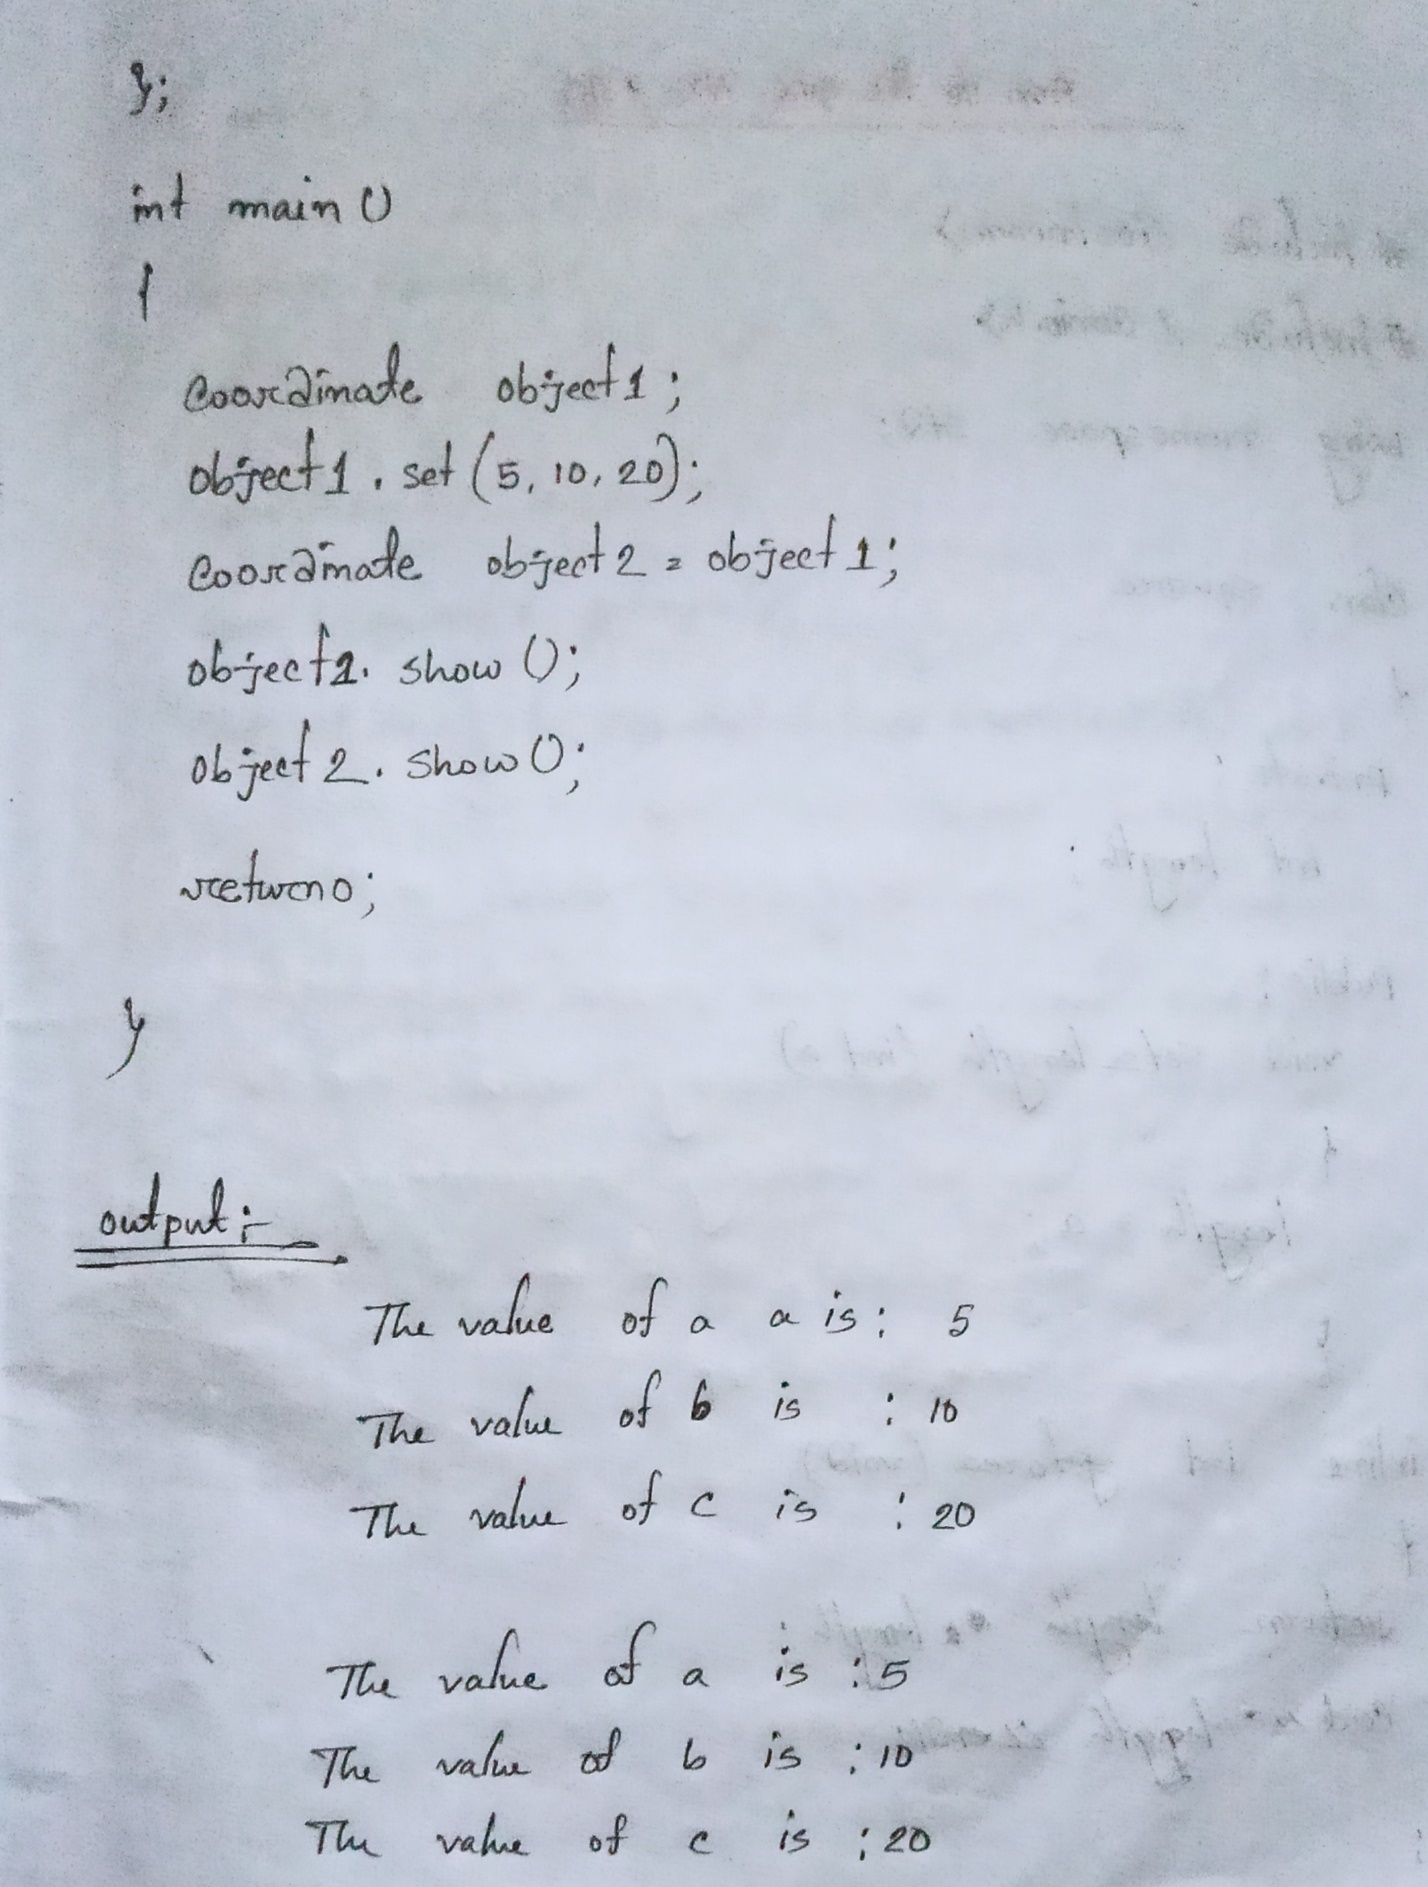 };
int main ()
{
Coordinate object1;
object1. set (5, 10, 20);
Coordinate object2 = object1;
object1. show ();
object2. show ();
return 0;
}
output :-
The value of a a is : 5
The value of b is : 10
The value of c is : 20
The value of a is : 5
The value of b is : 10
The value of c is : 20